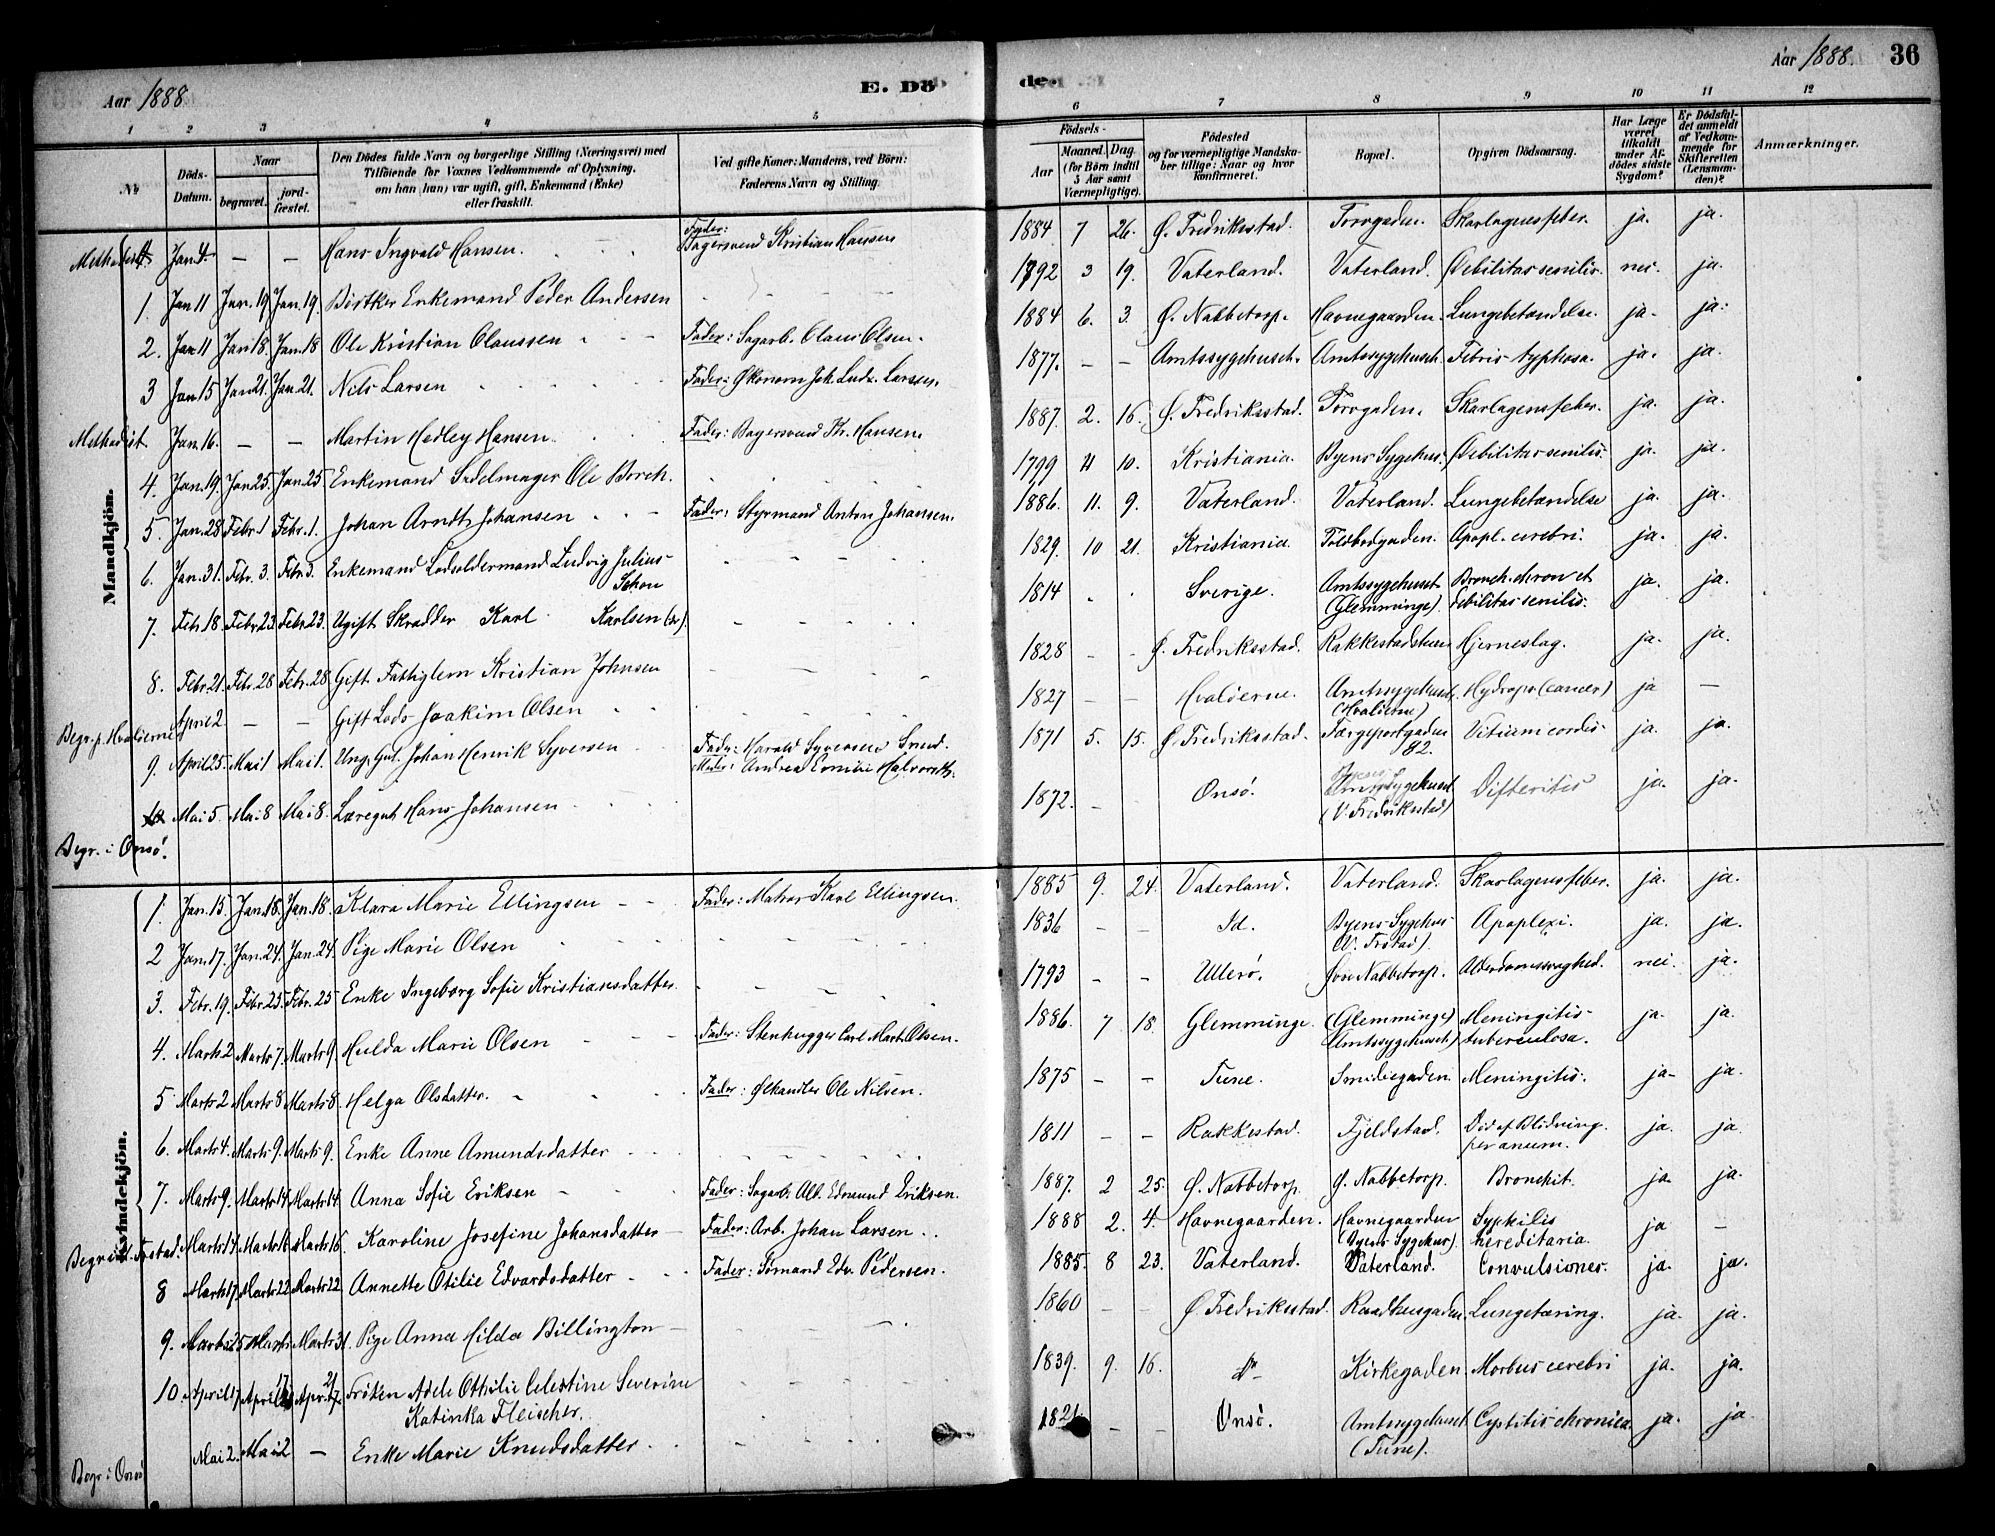 Aar 1888.
E. Dö
de.
Aar 1888.
36
1 2 3 4 5
6 7 8 9 10 11 12
No
Døds-Datum.
Naar
begravet.
jord-fæstet.
Den Dødes fulde Navn og borgerlige Stilling (Næringsvei) med
Tilföiende for Voxnes Vedkommende af Oplysning,
om han (hun) var ugift, gift, Enkemand (Enke)
eller fraskilt.
Ved gifte Koner: Mandens, ved Börn:
Faderens Navn og Stilling.
Födsels-
Aar
Maaned.
Dag.
(for Börn indtil
5 Aar samt
Værnepligtige).
Födested
og for værnepligtige Mandska-
ber tillige: Naar og hvor
konfirmeret.
Bopæl.
Opgiven Dödsaarsag.
Har Læge
været
tilkaldt
under Af-
dødes sidste
Sygdom?
Er Dödsfal-
det anmeldt
af Vedkom-
mende for
Skifteretten
(Lensman-
den)?
Anmærkninger.
Mandkjön.
Methodist Jan. 4. — — Hans Ingvald Hansen. Fader: Bagersvend Kristian Hansen 1884 7 26. Ø. Fredriksstad. Torvgaden. Skarlagensfeber. ja. ja.
1. Jan 11 Jan. 19 Jan. 19. Enkemand Peder Andersen 1792 3 19. Vaterland. Vaterland. Debilitas senilis. nei. ja.
2. Jan 11 Jan 18. Jan. 18 Ole Kristian Olaussen Fader: Sagarb. Olaus Olsen. 1884 6. 3. Ø. Nabbetorp. Havnegaarden. Lungebetændelse. ja. ja.
3 Jan 15 Jan 21. Jan 21. Nils Larsen Fader: Økonom Joh. Ludv. Larsen. 1877. — — Amtssygehuset. Amtssygehuset. Febris typhosa. ja. ja.
Methodist. Jan. 16. — — Martin Hedley Hansen. Fader: Bagersvend Kr. Hansen. 1887. 2. 16. Ø. Fredriksstad. Torvgaden. Skarlagensfeber. ja. ja.
4. Jan. 19. Jan 25. Jan. 25 Enkemand Sadelmager Ole Borch. 1799 4 10. Kristiania. Byens Sygehus. Debilitas senilis. ja. ja.
5. Jan. 28 Febr. 1 Febr. 1. Johan Arndt Johansen Fader: Styrmand Anton Johansen. 1886. 11. 9. Vaterland. Vaterland. Lungebetændelse ja. ja.
6. Jan. 31. Febr. 3. Febr. 3. Enkemand Lodsoldermand Ludvig Julius Schou 1829. 10 21. Kristiania. Toldbodgaden. Apopl. cerebri. ja. ja.
7. Febr. 18. Febr. 23. Febr. 23. Ugift Skrædder Karl Karlsen 1814 Sverige. Amtssygehuset (Glemminge). Bronch. chron et debilitas senilis. ja. ja.
8. Febr. 21. Febr. 28 Febr. 28. Gift Fattiglem Kristian Johnsen 1828 — — Ø. Fredriksstad. Hjerneslag. ja. ja.
Begr. p. Hvalöerne April 2 — — Gift Lods Joakim Olsen 1827 — — Hvalöerne. Amtssygehuset. (Hvalöerne) Hydrops (cancer) ja —
9. April 25. Mai 1 Mai 1. Ung. Gut. Johan Henrik Syversen Fader: Harald Syversen Smed. Moder: Andrea Emilie 1871 5. 15. Ø. Fredriksstad. Færgeportgaden 82. Vitium cordis. ja. ja.
10 Mai 5. Mai 8 Mai 8. Læregut Hans Johansen 1872. — Onsö. Sygehuset (V. Fredrikstad) Difteritis ja. ja.
Begr. i Onsö.
Kvindekjön.
1. Jan. 15. Jan. 18. Jan. 18. Klara Marie Ellingsen Fader: Matros Karl Ellingsen. 1885 9. 24. Vaterland. Vaterland. Skarlagensfeber. ja. ja.
2 Jan. 17. Jan. 24. Jan. 24. Pige Marie Olsen 1836 — — Id. Byens Sygehus (V. Frstad). Apoplexi. ja. ja.
3. Febr. 19. Febr. 25. Febr. 25 Enke Ingeborg Sofie Kristiansdatter 1793 — — Ullerö. Øvre Nabbetorp. Alderdomssvaghed. nei. ja.
4. Marts 2 Marts 7. Marts 9. Hulda Marie Olsen Fader: Stenhugger Carl Mart. Olsen. 1886. 7 18. Glemminge. (Glemminge) Amtssygehuset) Meningitis tuberculosa. ja. ja.
5 Marts 2 Marts 8 Marts 8. Helga Olsdatter. Fader: Ølhandler Ole Nilsen. 1875 — — Tune. Smidiegaden. Meningitis. ja. ja.
6. Marts 4. Marts 9. Marts 9. Enke Anne Amundsdatter 1811 — — Rakkestad. Fjeldstad. Död af Blödning per anum. ja. ja.
7. Marts 9. Marts 14. Marts 14. Anna Sofie Eriksen Fader: Sagarb. Alb. Edmund Eriksen. 1887. 2 25. Ø. Nabbetorp. Ø. Nabbetorp. Bronchit. ja. ja.
Begr. i V. Frstad. Marts 14 Marts 16 Marts 16. Karoline Josefine Johansdatter Fader: Arb. Johan Larsen. 1888 2. 4. Havnegaarden. Havnegaarden (Byens Sygehus). Syphilis hereditaria. ja —
8 Marts 17 Marts 22 Marts 22. Annette Otilie Edvardsdatter Fader: Sömand Edv. Pedersen. 1885. 8 23. Vaterland. Vaterland. Convulsioner. ja. ja.
9. Marts 25 Marts Marts 31. Pige Anna Hilda Billington 1860 — — Ø. Fredrikstad. Raadhusgaden. Lungetæring. ja. ja.
10. April 17 April Apr. 21 Fröken Adele Othilie Celestine Severine Katinka Fleischer. 1839. 9. 16. do Kirkegaden Morbus cerebri ja. ja.
Begr. i Onsö Mai 2. Mai 2 — Enke Marie Knudsdatter. 1821. — — Onsö. Amtssygehuset (Tune). Cystitis chronica. ja. ja.